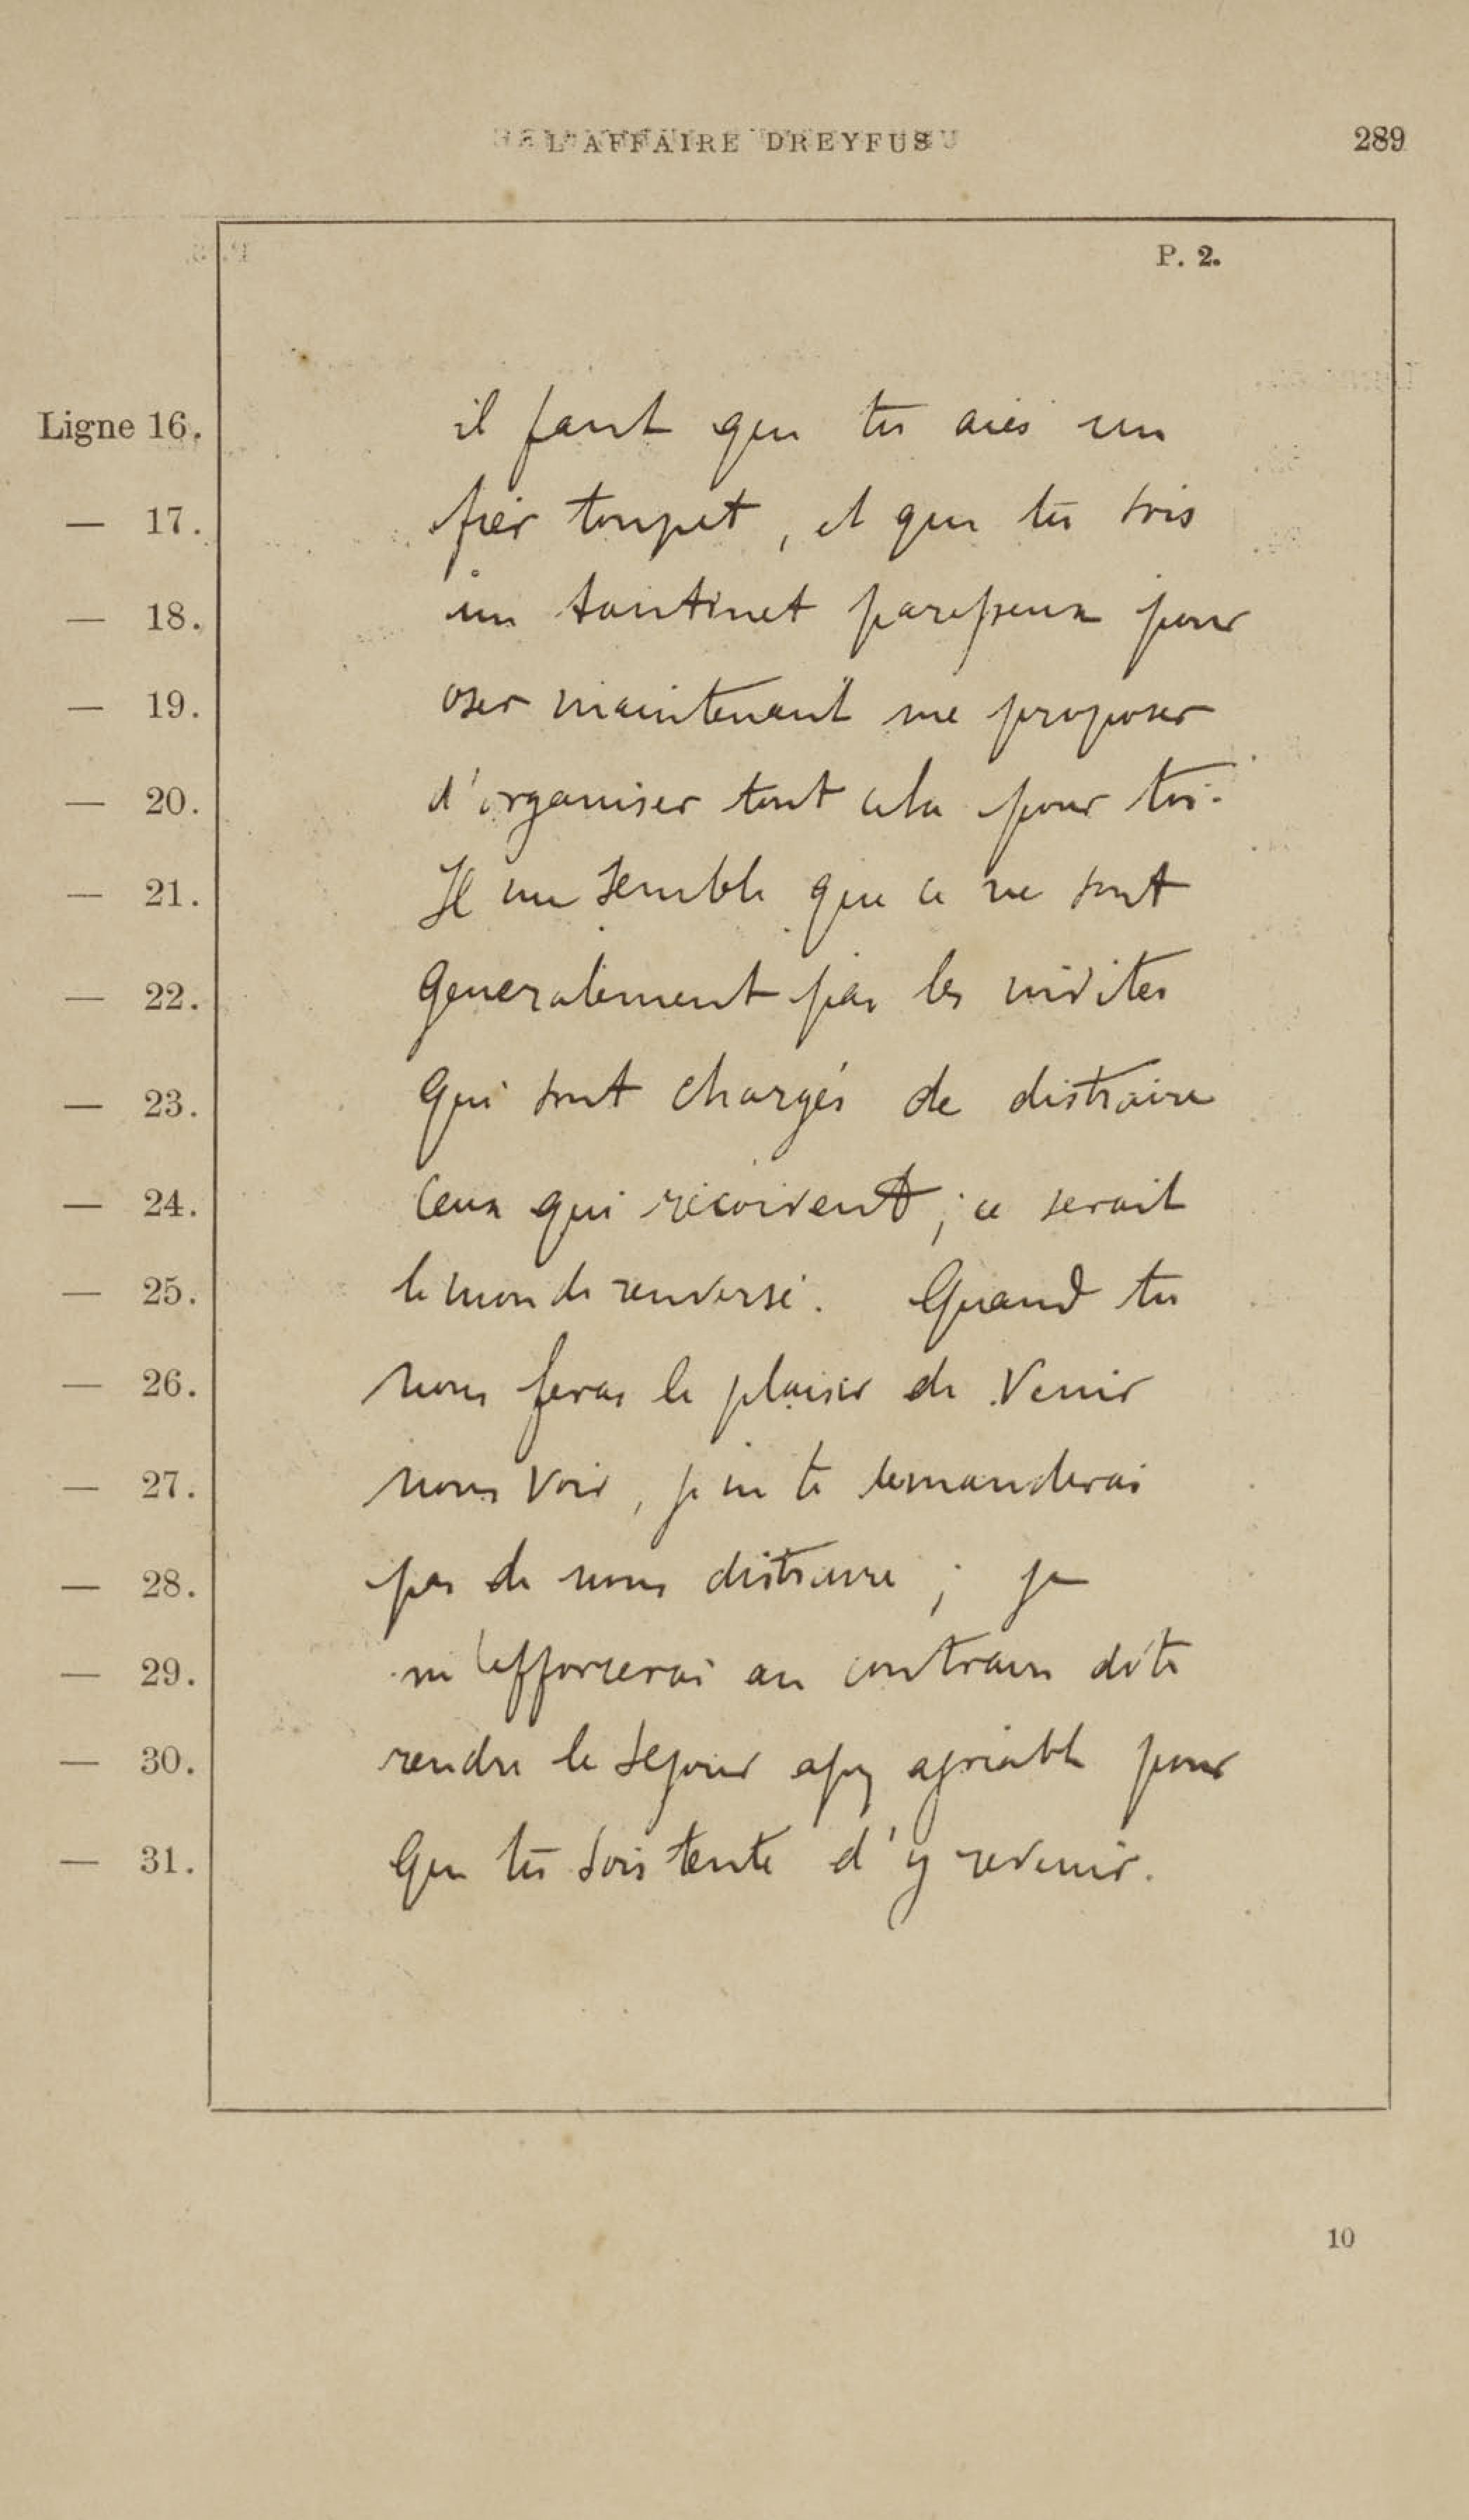 L'AFFAIRE DREYFUS 289
P. 2.
Ligne 16. il faut que tu aies un
— 17. fier toupet, et que tu sois
— 18. un tantinet paresseux pour
— 19. oser maintenant me proposer
— 20. d'organiser tout cela pour toi.
— 21. Il me semble que ce ne sont
— 22. generalement pas les invites
— 23. qui sont chargés de distraire
— 24. ceux qui récoivent ; ce serait
— 25. le monde renversé. Quand tu
— 26. nous feras le plaisir de Venir
— 27. nous Voir, je ne te demanderai
— 28. pas de nous distraire ; je
— 29. m'efforcerai au contraire de te
— 30. rendre le sejour assez agréable pour
— 31. que tu sois tente d'y revenir.
10